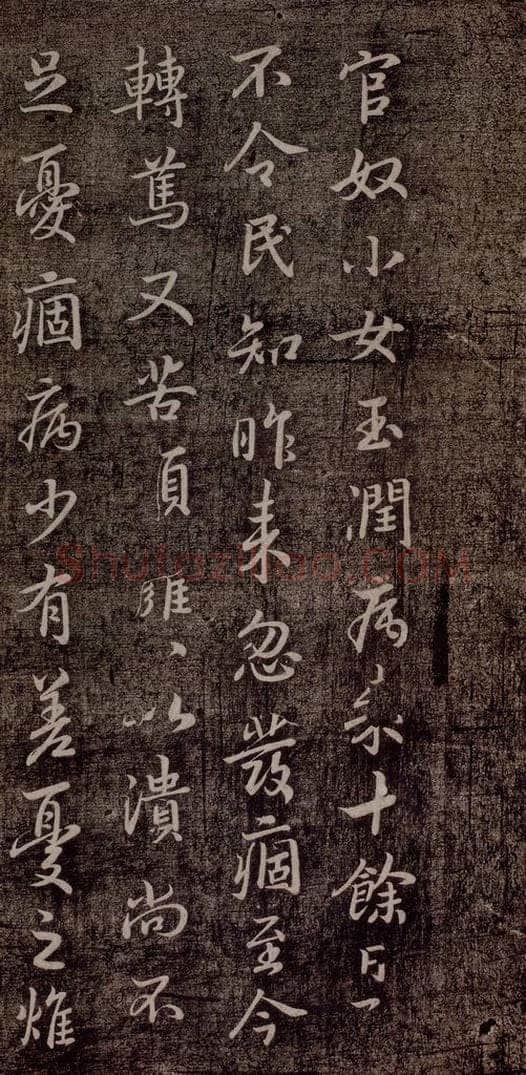 官奴小女玉潤病來十餘日
不令民知昨來忽發痼至今
轉篤又苦頭癰、以潰尚不
足憂痼病少有差憂之燋
Shufazidiao.COM